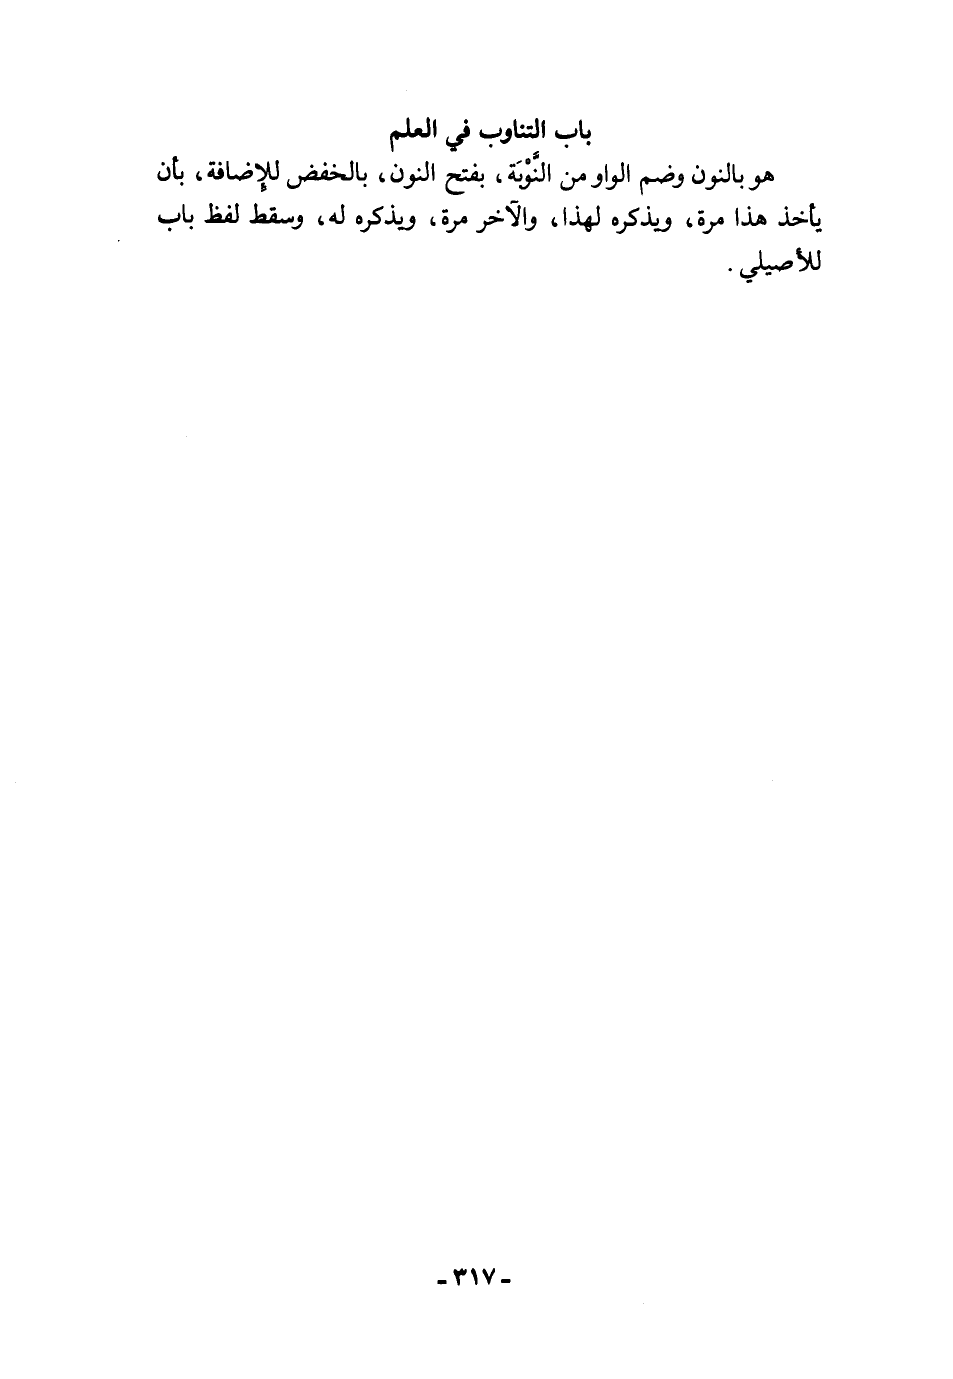 باب التناوب في العلم
هو بالنون وضم الواو من النَّوْبَة، بفتح النون، بالخفض للإِضافة، بأن
يأخذ هذا مرة، ويذكره لهذا، والآخر مرة، ويذكره له، وسقط لفظ باب
للأصيلي.
- ٣١٧ -